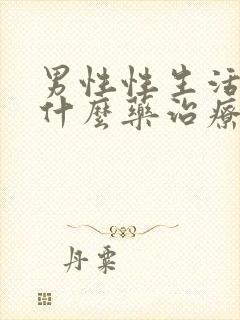 男性性生活
什麼藥治療
丹粟